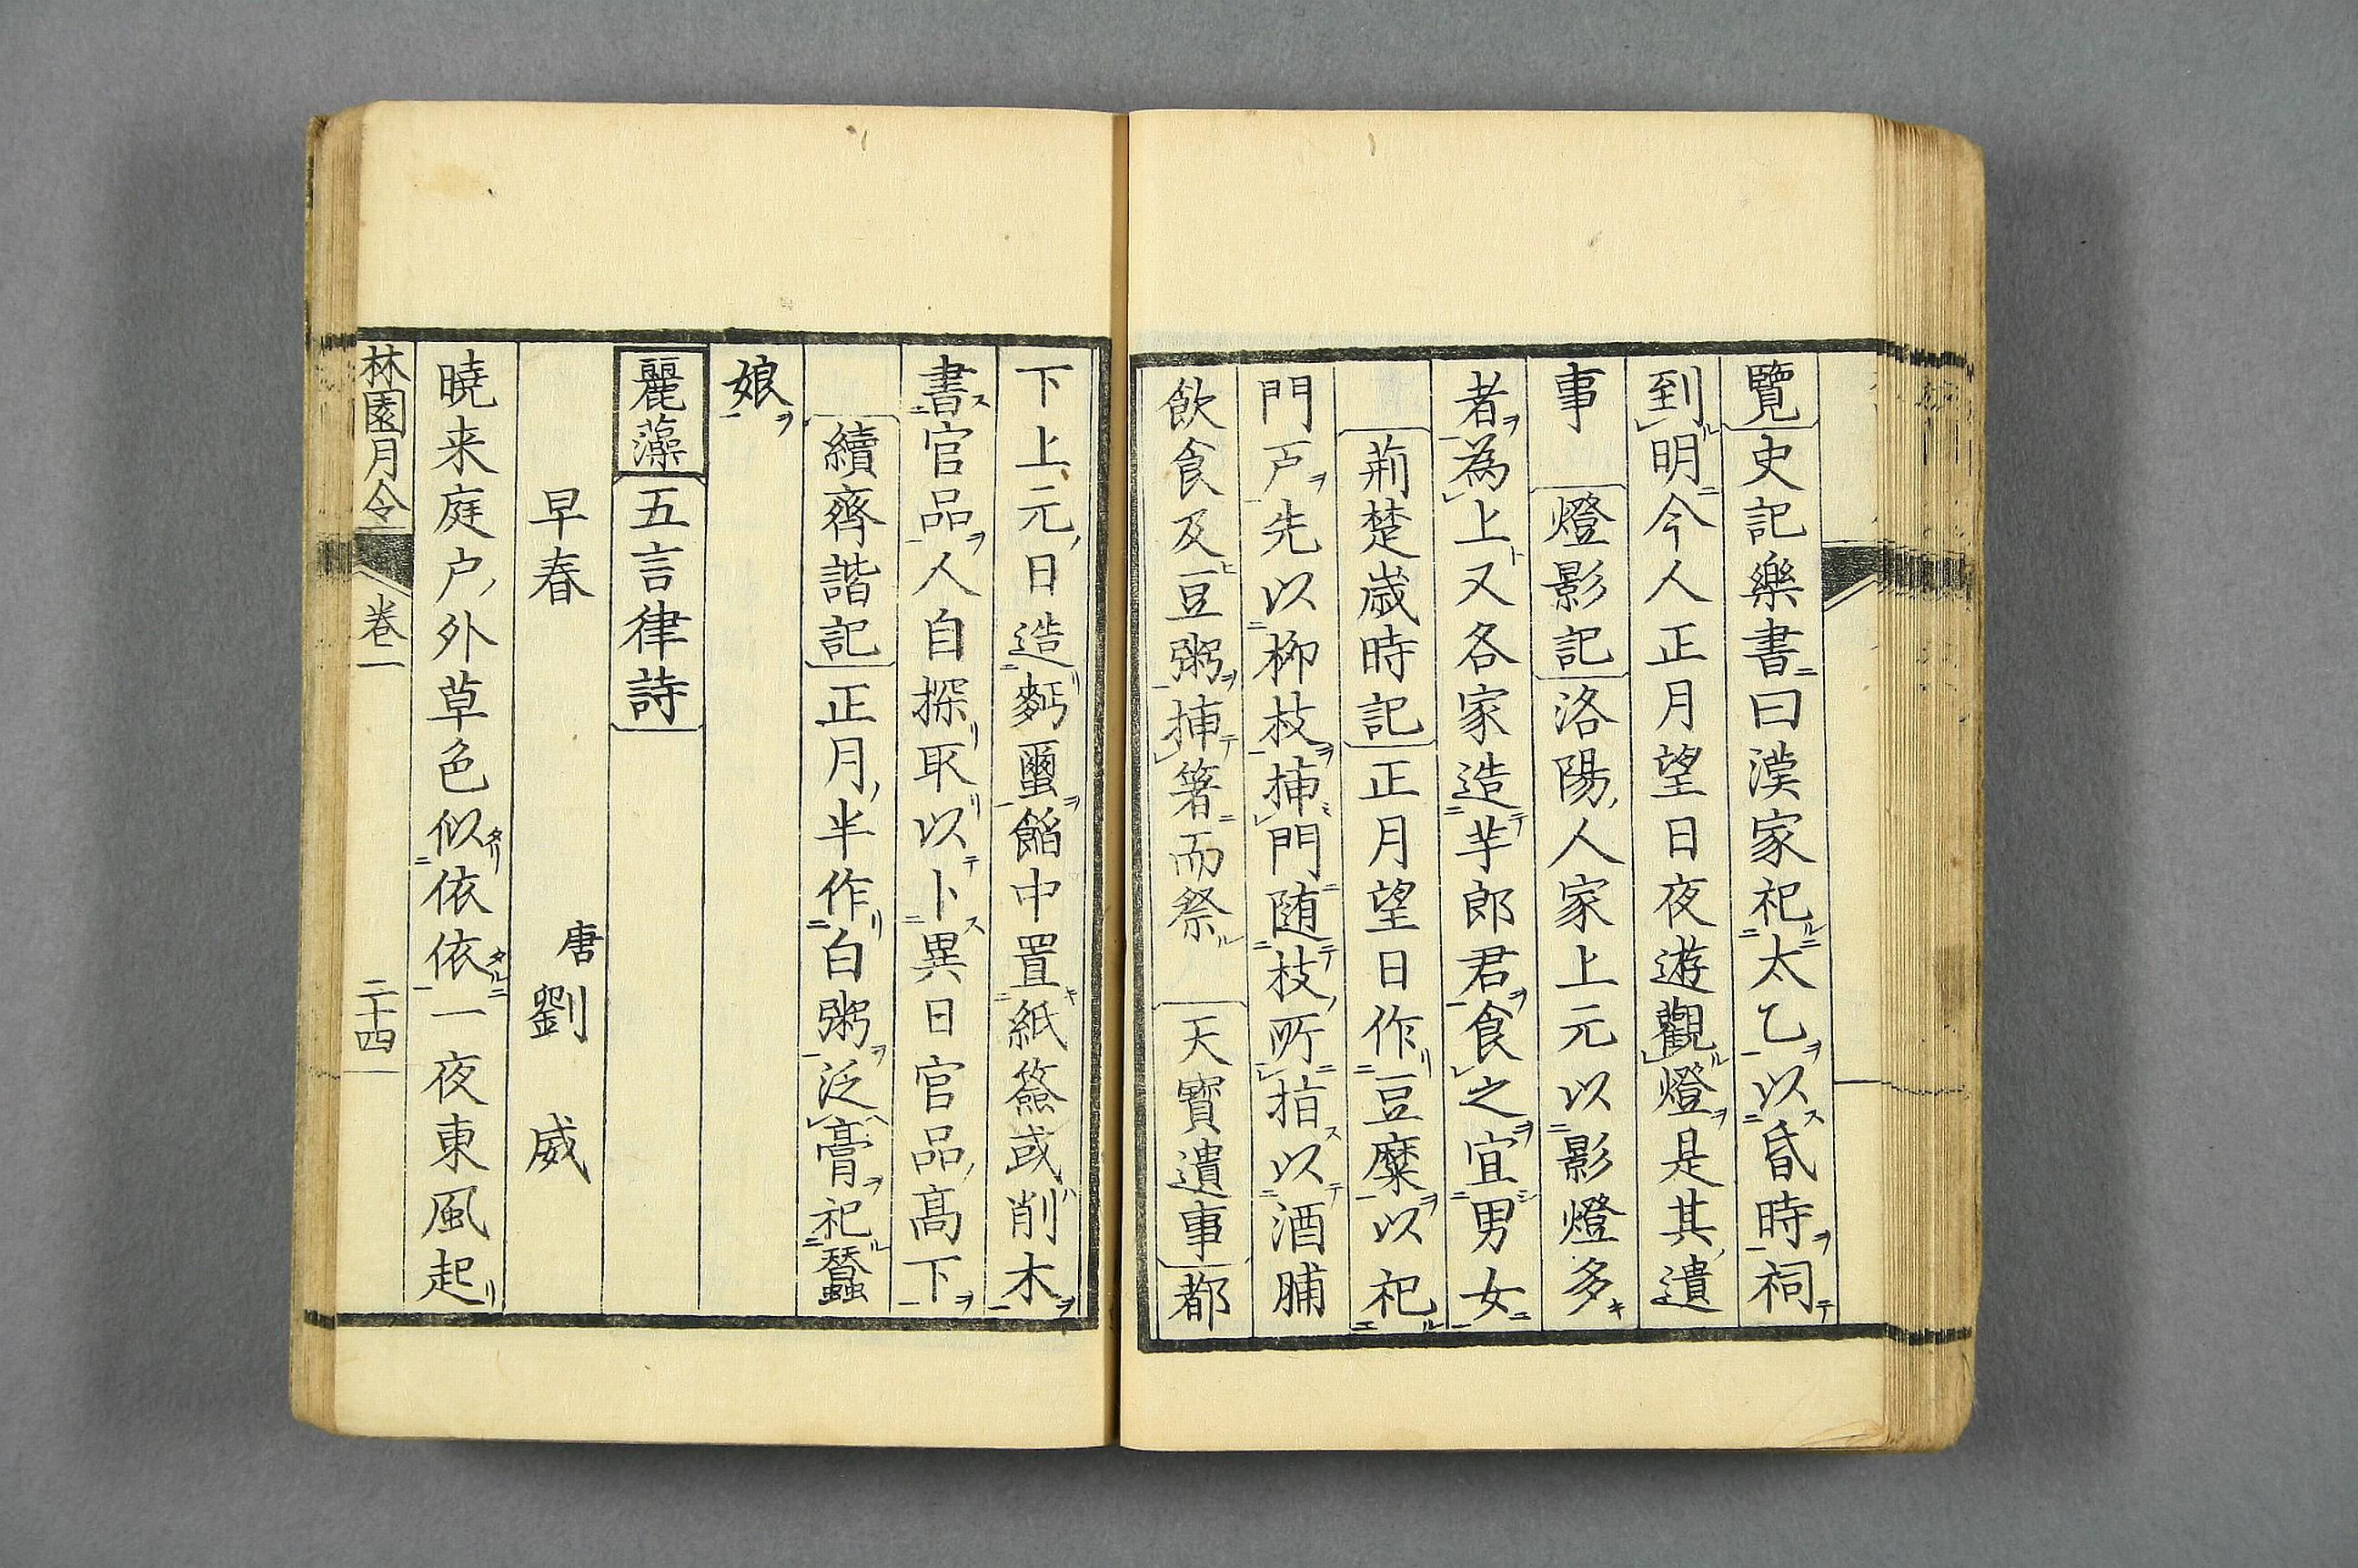 覽史記樂書曰漢家祀太乙以昏時祠
到明今人正月望日夜遊觀燈是其遺
事 燈影記洛陽人家上元以影燈多
者為上又各家造芋郎君食之宜男女
荊楚歲時記正月望日作豆糜以祀
門戸先以柳枝挿門随枝所指以酒脯
飲食及豆粥挿箸而祭 天寶遺事都
下上元日造麪蠒餡中置紙簽或削木
書官品人自探取以卜異日官品高下
續齊諧記正月半作白粥泛膏祀蠶
娘
麗藻 五言律詩
早春 唐劉威
曉来庭户外草色似依依一夜東風起
林園月令 卷一 二十四